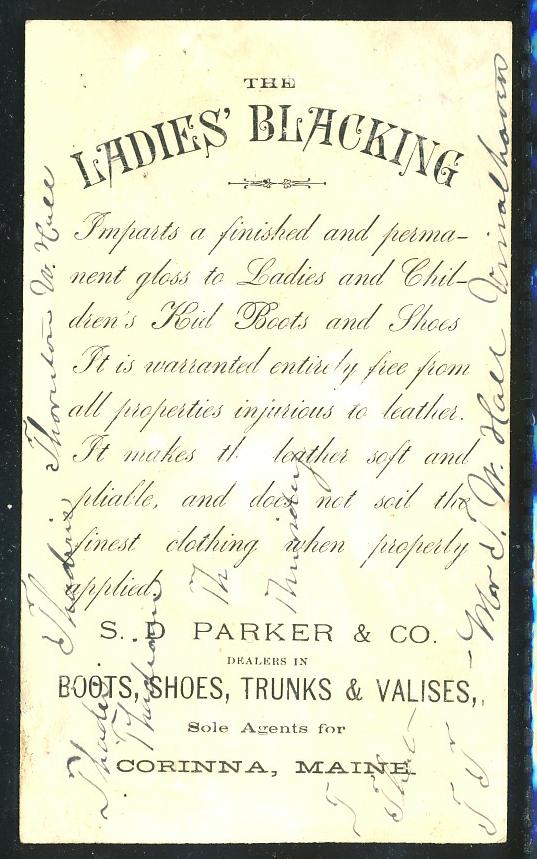 THE
LADIES' BLACKING
Imparts a finished and perma-
nent gloss to Ladies and Chil-
dren's Kid Boots and Shoes
It is warranted entirely free from
all properties injurious to leather.
It makes th leather soft and
pliable, and does not soil the
finest clothing when properly
applied.
S. D PARKER & CO.
DEALERS IN
BOOTS, SHOES, TRUNKS & VALISES,
Sole Agents for
CORINNA, MAINE
Thornton W. Hall
Th
Thursday
Mr T. W. Hall Vinalhaven
T T